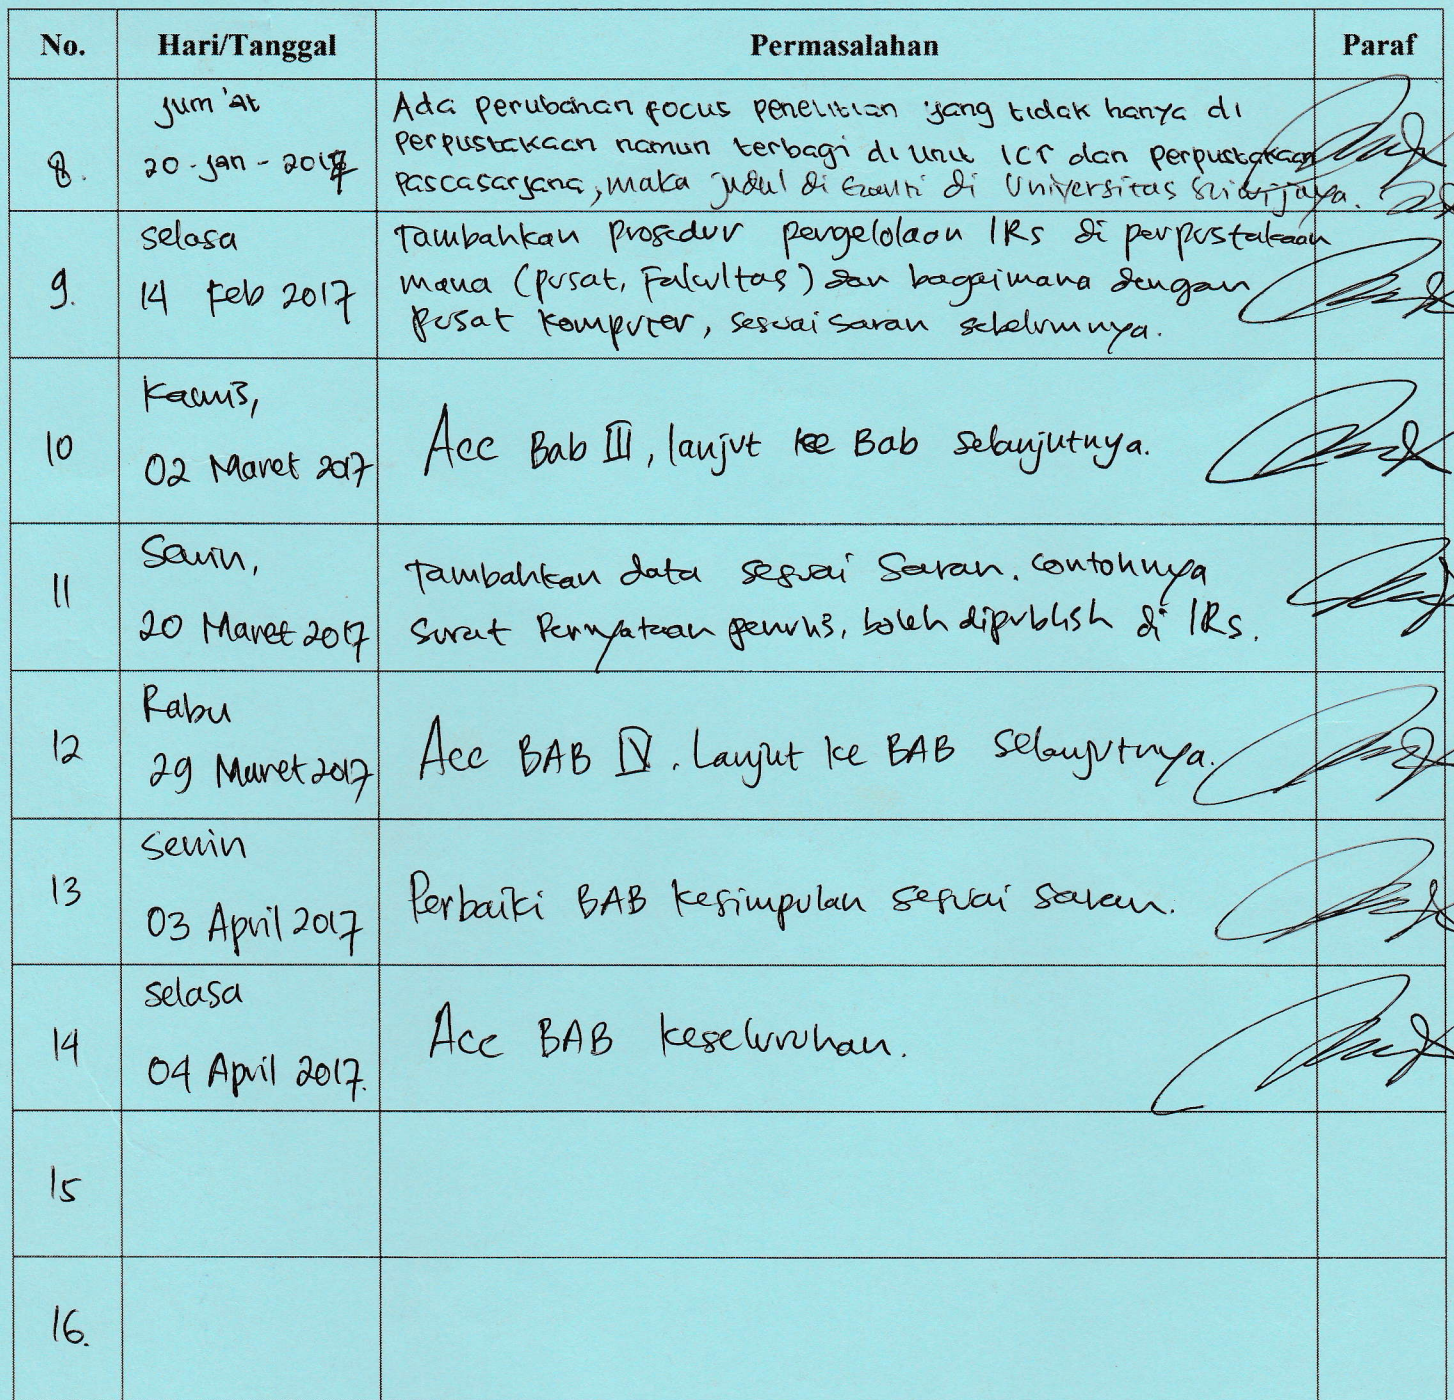 No. Hari/Tanggal Permasalahan Paraf
Jum'at
8. 20-Jan-2017
Ada perubahan focus penelitian yang tidak hanya di
perpustakaan namun terbagi di Unit ICT dan perpustakaan
Pascasarjana, maka judul di Ganti di Universitas Sriwijaya.
Selasa
9. 14 Feb 2017
Tambahkan prosedur pengelolaan IRs di perpustakaan
mana (pusat, Fakultas) dan bagaimana dengan
pusat komputer, sesuai saran sebelumnya.
Kamis,
10 02 Maret 2017
Acc Bab III, lanjut ke Bab selanjutnya.
Senin,
11 20 Maret 2017
Tambahkan data sesuai Saran. contohnya
Surat Pernyataan penulis, boleh dipublish di IRs.
Rabu
12 29 Maret 2017
Acc BAB IV. Lanjut ke BAB selanjutnya.
Senin
13 03 April 2017
Perbaiki BAB kesimpulan sesuai saran.
Selasa
14 04 April 2017.
Acc BAB keseluruhan.
15
16.